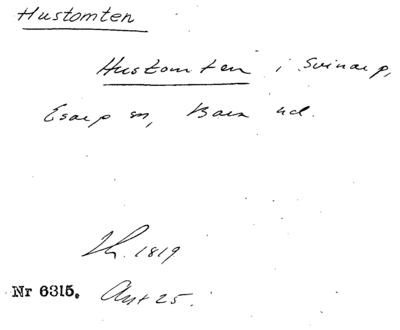 Hustomten
Hustomten i Svinarp,
Esarp sn, Bara hd.
Lh. 1819
Nr 6315. Ant 25.